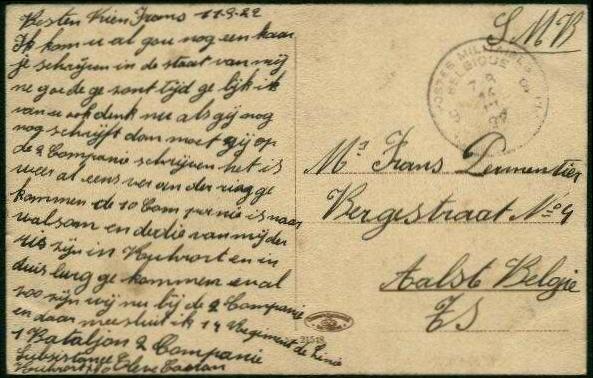 Besten Vrien Frans 11-9-22
Ik kom u al gou nog een kaar
je schrijven in de staat van mij
ne goede ge zont tijd ge lijk ik
van u ook denk nu als gij nog
nog schrijft dan moet gij op
de 2 Companie schrijven het is
weer al eens ver an der ring ge
kommen de 10 Companie is naar
walsom en dertie van mij der
zijn in Ruhrort en in
duisburg ge kommen en al
zoo zijn wij nu bij de 2 Companie
en daar mee sluit ik 14 Regiment de Linie
1 Bataljon 2 Companie
Subsistance
Ruhrort
S.M.B
POSTES MILITAIRES
BELGIQUE
Mr Frans Dermentier
Bergestraat No 4
Aalst Belgie
21548